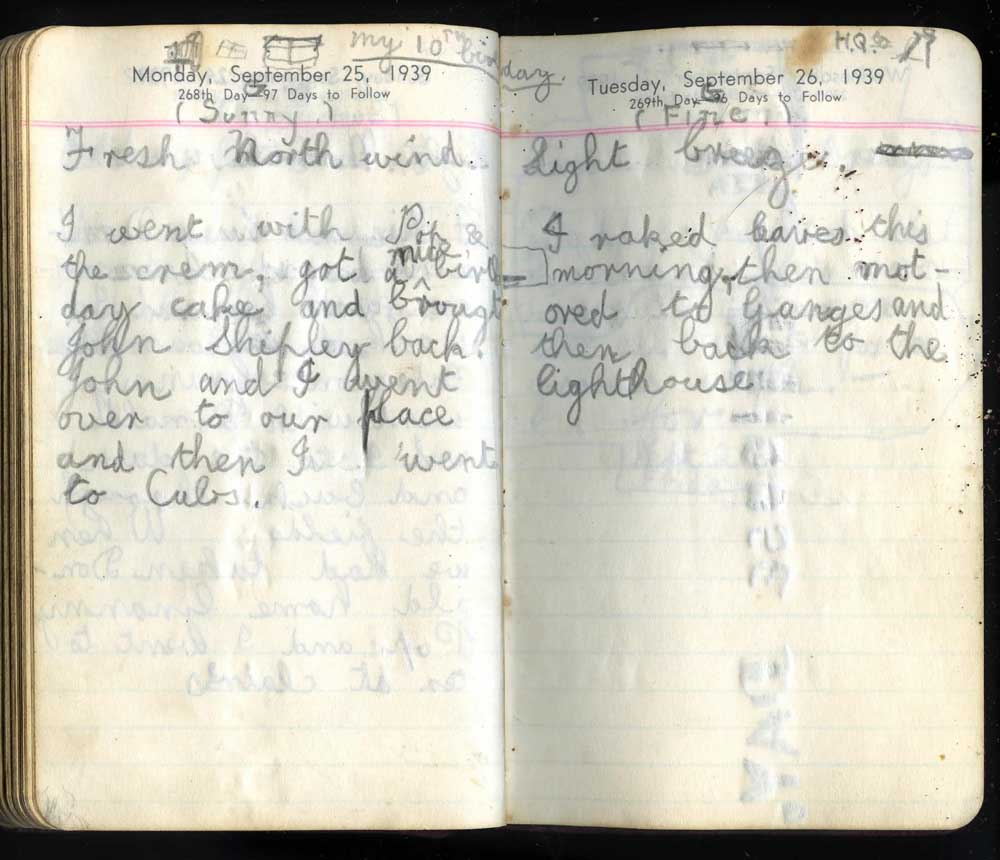 my 10TH birthday.
Monday, September 25, 1939
268th Day 97 Days to Follow
(Sunny.)
Fresh North wind.
I went with Pop &
the crem, got a nice birth-
day cake and brought
John Shipley back.
John and I went
over to our place
and then I went
to Cubs.
H.Q.
Tuesday, September 26, 1939
269th Day 96 Days to Follow
(Fine.)
Light
I raked leaves this
morning, then mot-
ored to Ganges and
then back to the
lighthouse